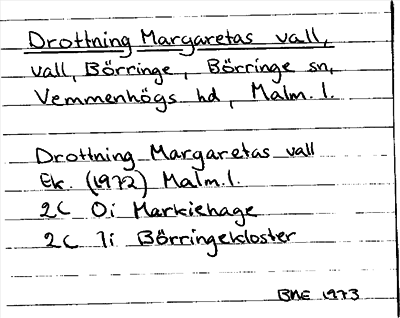 Drottning Margaretas vall,
vall, Börringe, Börringe sn,
Vemmenhögs hd, Malm. l.
Drottning Margaretas vall
Ek. (1972) Malm. l.
2C 0i Markiehage
2C 1i Börringekloster
BNE 1973